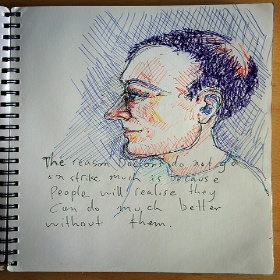 The reason Doctors do not go
on strike much is because
people will realise they
can do much better
without them.